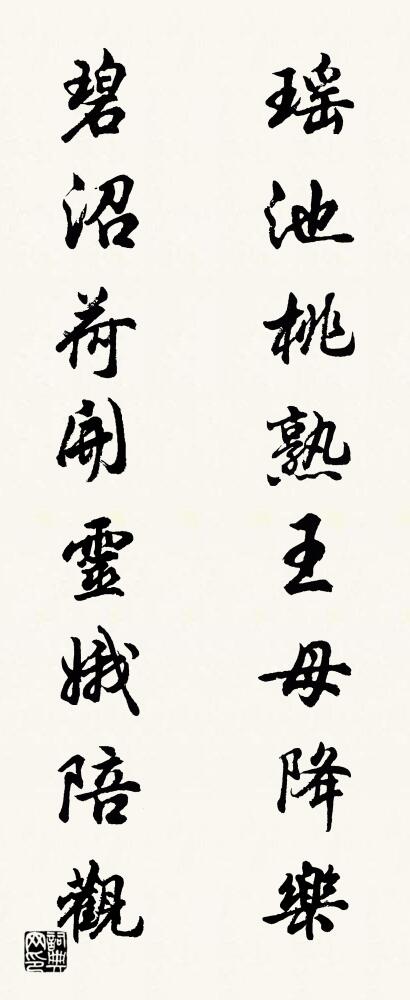 瑶池桃熟王母降樂
碧沼荷開靈娥陪觀
詞典网印